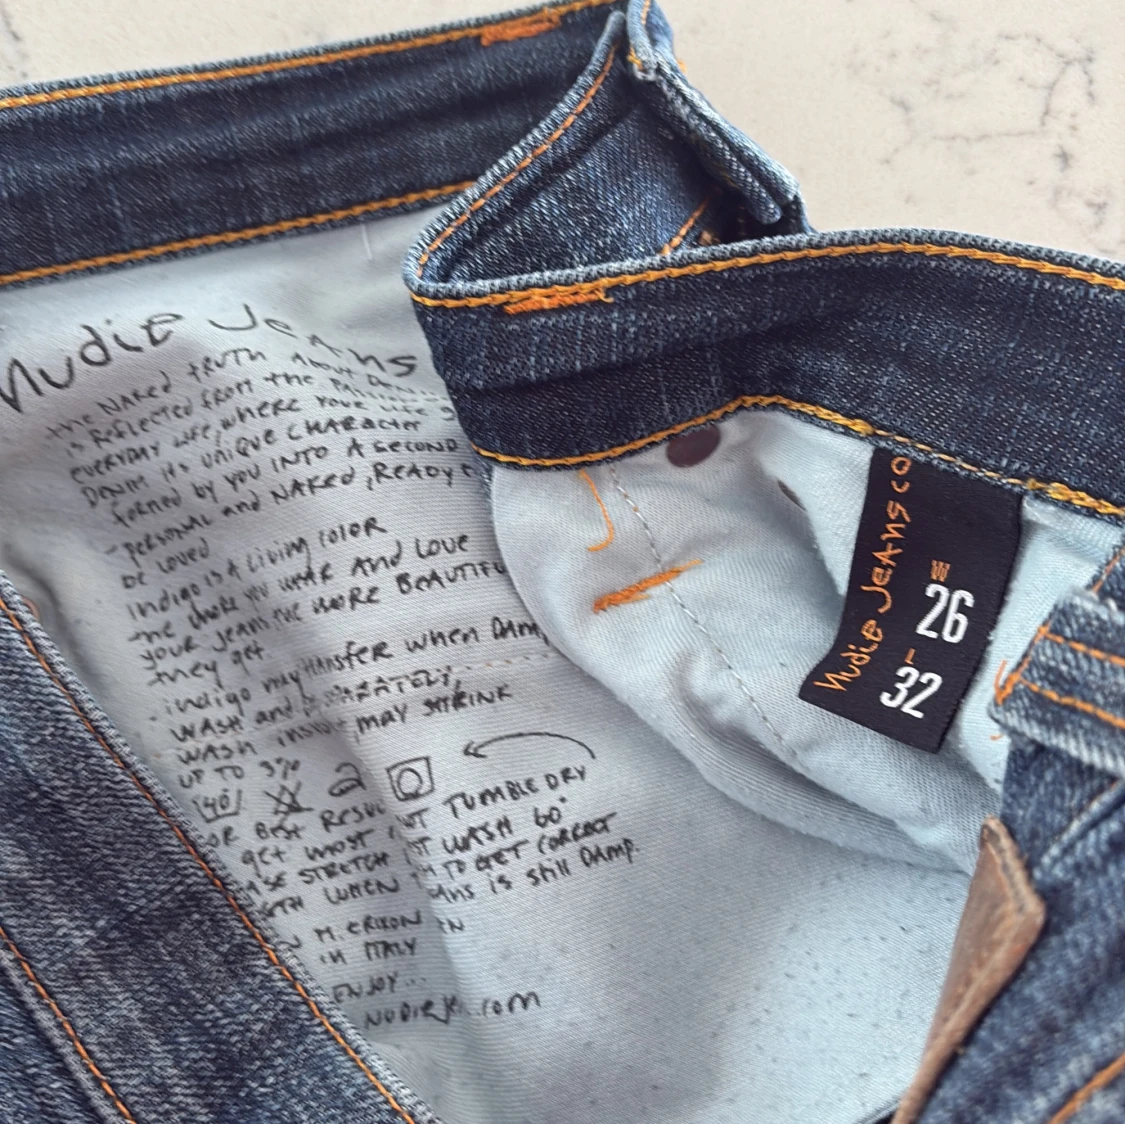 Nudie Jeans
the NAKED tRUTH About Denim
is Reflected from the
EVERYDAY LiFE, WHERE YOUR LiFE
DENIM its UNIQUE CHARACTER
formed by you INTO A SECOND
personal and NAKED, READY t
be LOVED
Indigo is A Living COLOR
the more you WEAR And LOVE
your Jeans the more BEAUTIFU
they get
indigo may transfer when DAM
WASH and SEPARATELY,
WASH inside may SHRINK
UP TO 3%
40
OR BEST RESUL NOT TUMBLE DRY
get MOST WASH 60°
STRETCH TO GET CORRECT
WHEN is still DAMP.
M. ERIXON
in ITALY
ENJOY...
NUDIEJE .com
Nudie Jeans co
W 26
L 32